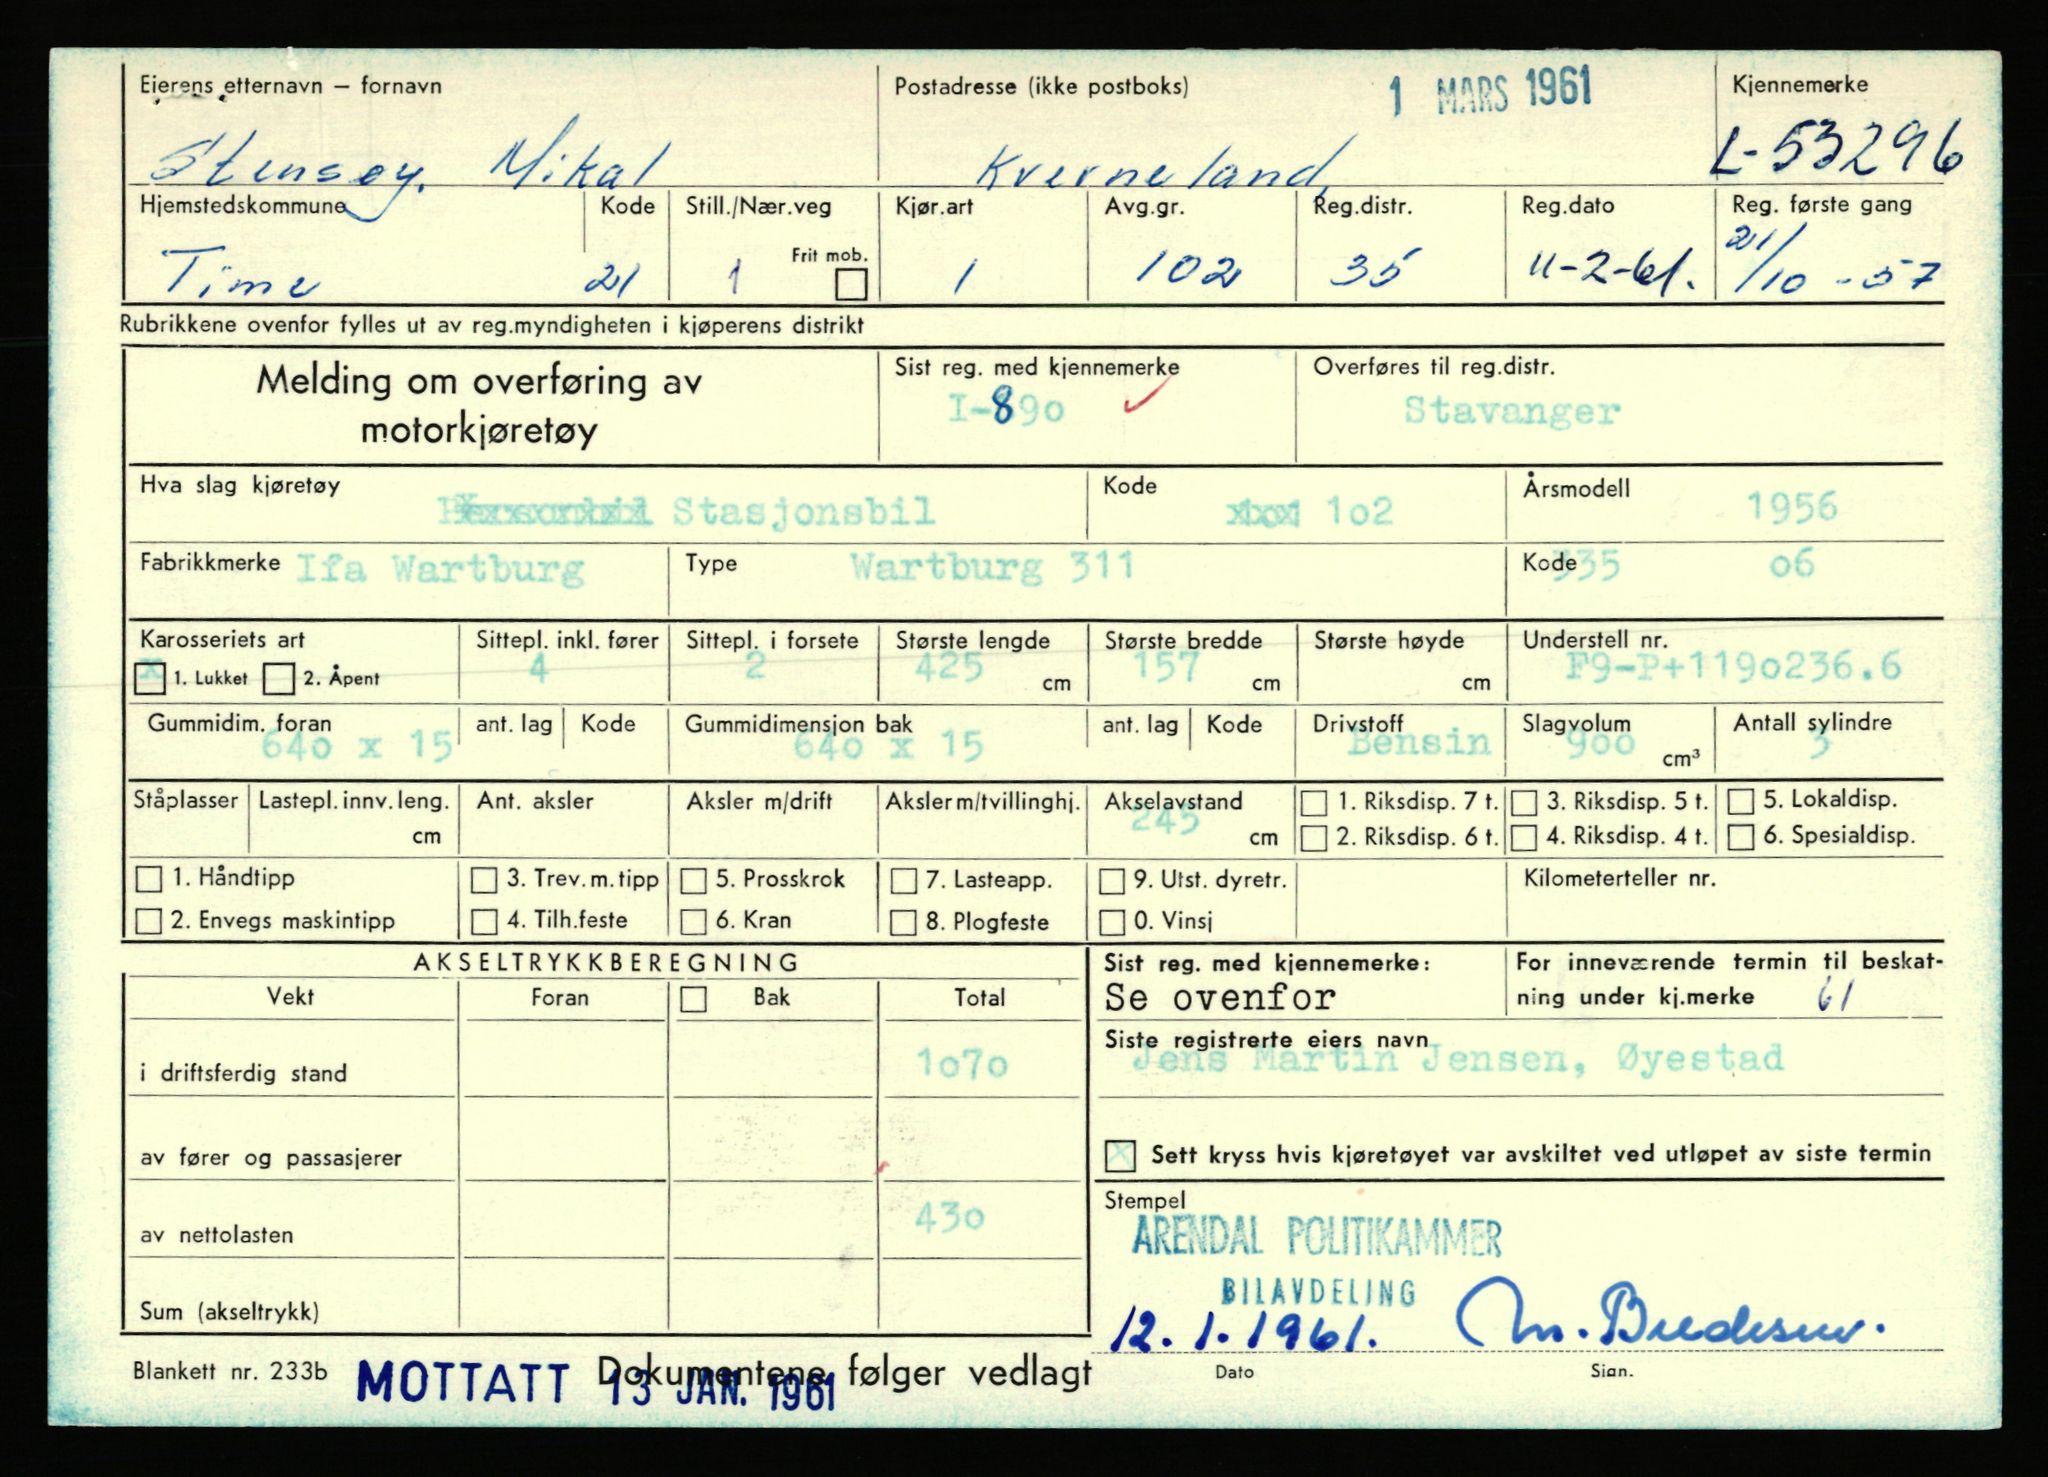 Eierens etternavn – fornavn Postadresse (ikke postboks) 1 MARS 1961 Kjennemerke
Stensøy, Mikal Kverneland, L-53296
Hjemstedskommune Kode Still./Nær.veg Kjør.art Avg.gr. Reg.distr. Reg.dato Reg. første gang
Frit mob.
Time 21 1 1 102 35 11-2-61. 21/10-57
Rubrikkene ovenfor fylles ut av reg.myndigheten i kjøperens distrikt
Melding om overføring av Sist reg. med kjennemerke Overføres til reg.distr.
motorkjøretøy I-890 Stavanger
Hva slag kjøretøy Stasjonsbil Kode 102 Årsmodell 1956
Fabrikkmerke Ifa Wartburg Type Wartburg 311 Kode 335 06
Karosseriets art Sittepl. inkl. fører Sittepl. i forsete Største lengde Største bredde Største høyde Understell nr.
x 1. Lukket 2. Åpent 4 2 425 cm 157 cm cm F9-P+1190236.6
Gummidim. foran ant. lag Kode Gummidimensjon bak ant. lag Kode Drivstoff Slagvolum Antall sylindre
640 x 15 640 x 15 Bensin 900 cm³ 3
Ståplasser Lastepl. innv. leng. Ant. aksler Aksler m/drift Aksler m/tvillinghj. Akselavstand 1. Riksdisp. 7 t. 3. Riksdisp. 5 t. 5. Lokaldisp.
cm 245 cm 2. Riksdisp. 6 t. 4. Riksdisp. 4 t. 6. Spesialdisp.
1. Håndtipp 3. Trev. m. tipp 5. Prosskrok 7. Lasteapp. 9. Utst. dyretr. Kilometerteller nr.
2. Envegs maskintipp 4. Tilh.feste 6. Kran 8. Plogfeste 0. Vinsj
AKSELTRYKKBEREGNING Sist reg. med kjennemerke: For inneværende termin til beskat-
Vekt Foran Bak Total Se ovenfor ning under kj.merke 61
Siste registrerte eiers navn
i driftsferdig stand 1070 Jens Martin Jensen, Øyestad
av fører og passasjerer X Sett kryss hvis kjøretøyet var avskiltet ved utløpet av siste termin
Stempel
av nettolasten 430 ARENDAL POLITIKAMMER
BILAVDELING
Sum (akseltrykk) 12.1.1961. M. Bredesen.
Blankett nr. 233b Dokumentene følger vedlagt Dato Sign.
MOTTATT 13 JAN. 1961